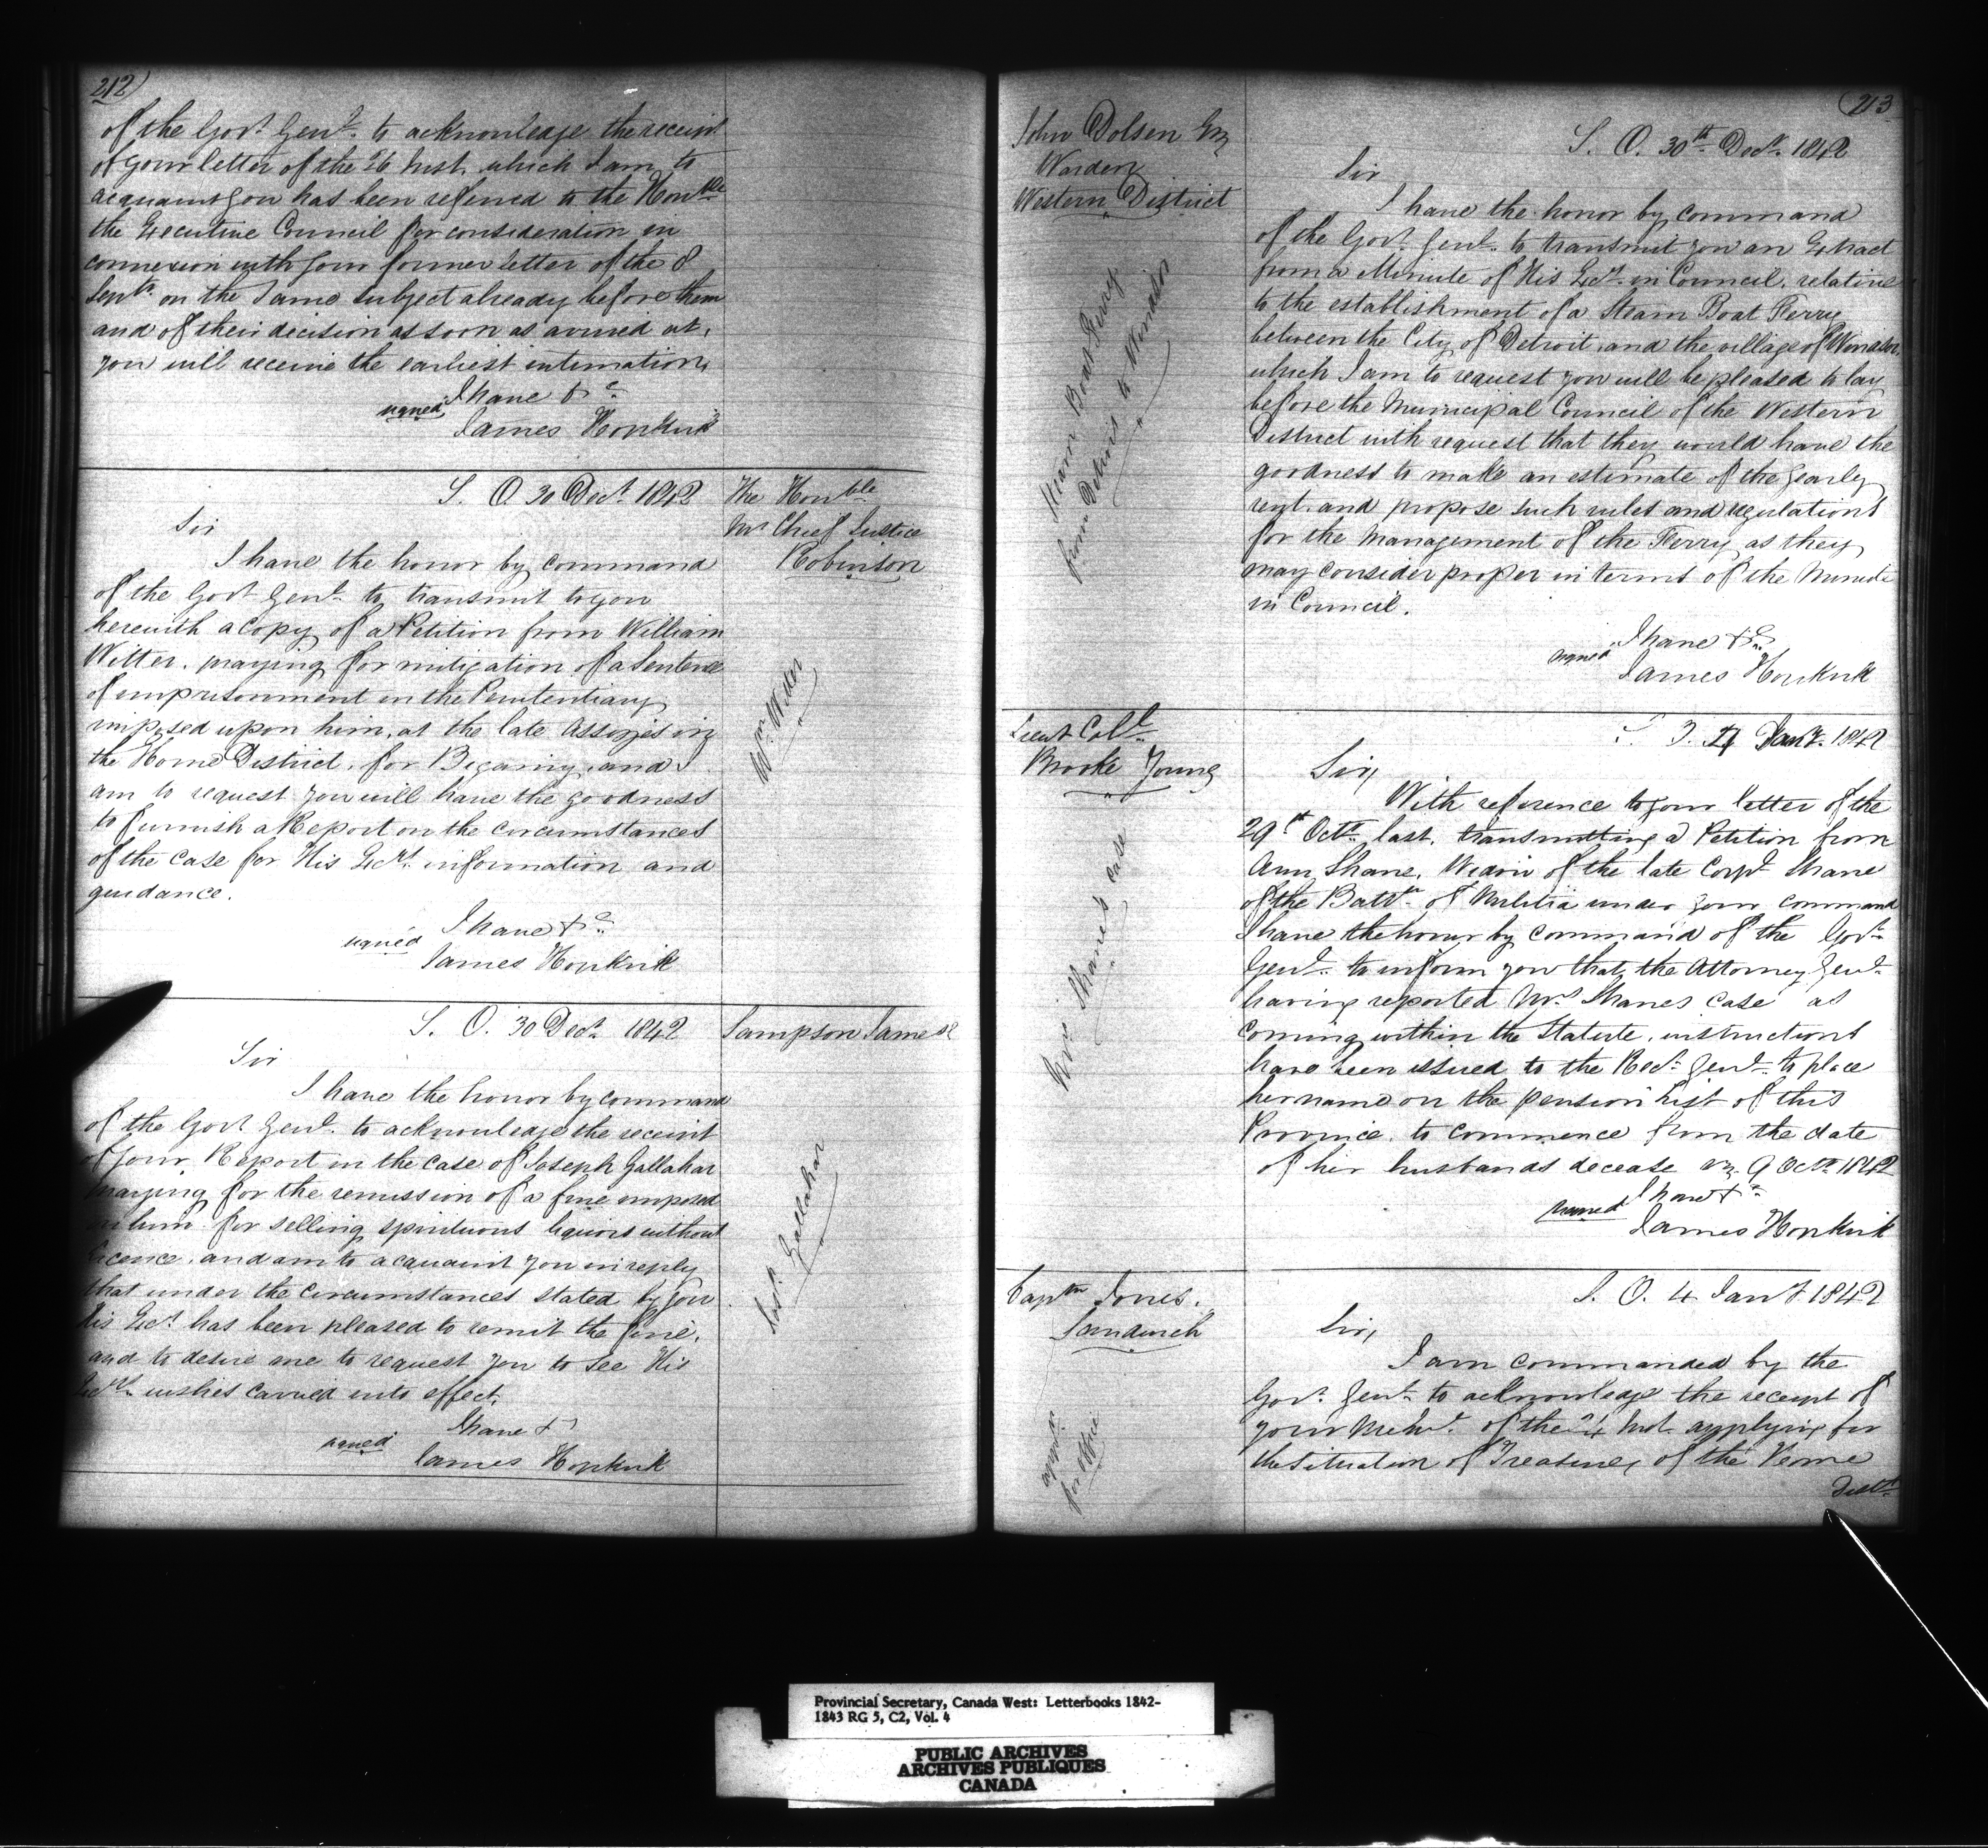 212)
of the Govr. Genl. to acknowledge the receipt
of your letter of the 26 Inst. which I am to
acquaint you has been referred to the Honble
the Executive Council for consideration in
connexion with your former letter of the 8
Septr. on the same subject already before them
and of their decision as soon as arrived at,
you will receive the earliest intimation,
I have &c
signed
James Hopkirk
S. O. 30 Decr. 1842
The Honble
Mr Chief Justice
Robinson
Sir
I have the honor by command
of the Govr Genl. to transmit to you
herewith a Copy of a Petition from William
Witter, praying for mitigation of a Sentence
of imprisonment in the Penitentiary
imposed upon him, at the late Assizes in
the Home District, for Bigamy, and I
am to request you will have the goodness
to furnish a Report on the circumstances
of the case for His Excy's. information and
guidance.
Wm. Witter
I have &c
signed
James Hopkirk
S. O. 30 Decr. 1842
Sampson James
Sir
I have the honor by command
of the Govr Genl. to acknowledge the receipt
of your Report in the case of Joseph Gallahar
praying for the remission of a fine imposed
on him for selling spirituous liquors without
licence, and am to acquaint you in reply
that under the circumstances stated by you
His Excy. has been pleased to remit the fine,
and to desire me to request you to see His
Excy's. wishes carried into effect.
Josh. Gallahar
I have &
signed
James Hopkirk
213
John Dolsen
Warden
Western District
S. O. 30th Decr. 1842
Sir
I have the honor by command
of the Govr. Genl. to transmit you an Extract
from a Minute of His Excy. in Council, relative
to the establishment of a Steam Boat Ferry
between the City of Detroit, and the village of Windsor,
which I am to request you will be pleased to lay
before the Municipal Council of the Western
District with request that they would have the
goodness to make an estimate of the yearly
rent, and propose such rules and regulations
for the management of the Ferry, as they
may consider proper in terms of the Minute
in Council.
Steam Boat Ferry
from Detroit to Windsor
I have &c
signed
James Hopkirk
Lieut Coll.
Brooke Young
4 Jany. 1842
Sir,
With reference to your letter of the
29th Octr. last, transmitting a Petition from
Ann Shane, Widow of the late Corpl. Shane
of the Battn. of Militia under your command
I have the honor by command of the Govr.
Genl. to inform you that the Attorney Genl.
having reported Mrs Shanes case as
coming within the Statute, instructions
have been issued to the Recr. Genl. to place
her name on the pension list of this
Province, to commence from the date
of her husbands decease viz. 9 Octr. 1842
Mrs Shanes case
I have &c
signed
James Hopkirk
Captn Jones.
Sandwich
S. O. 4 Jany 1842
Sir,
I am commanded by the
Govr. Genl. to acknowledge the receipt of
your of the Inst. applying for
the Situation of Treasurer of the Home
Distt.
for Office
Provincial Secretary, Canada West: Letterbooks 1842-
1843 RG 5, C2, Vol. 4
PUBLIC ARCHIVES
ARCHIVES PUBLIQUES
CANADA